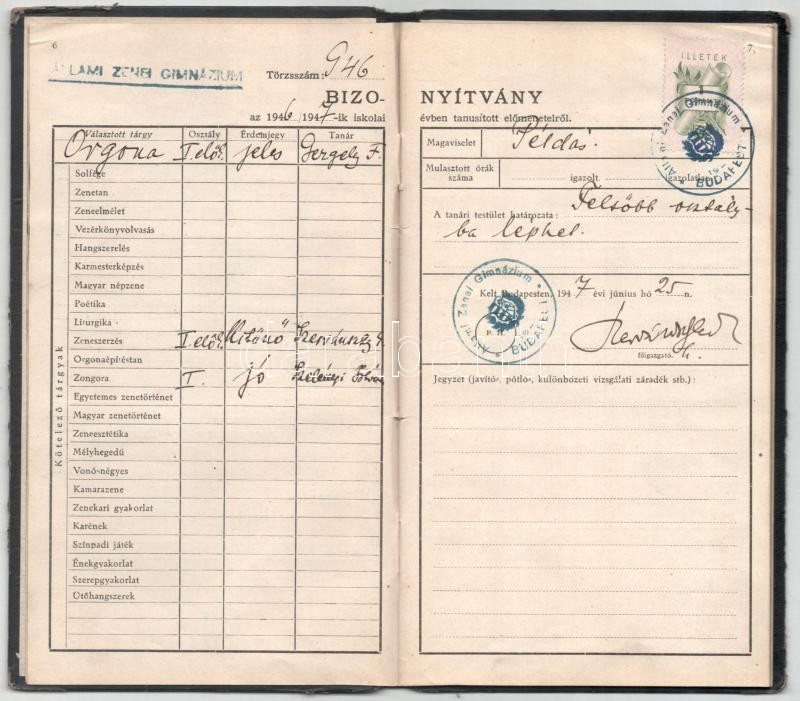 6
ÁLLAMI ZENEI GIMNÁZIUM
Törzsszám: 946
BIZO-
az 1946/1947-ik iskolai
Választott tárgy Osztály Érdemjegy Tanár
Orgona I. elők. jeles Gergely F.
Kötelező tárgyak
Solfége
Zenetan
Zeneelmélet
Vezérkönyvolvasás
Hangszerelés
Karmesterképzés
Magyar népzene
Poétika
Liturgika
Zeneszerzés I. elők. kitűnő
Orgonaépítéstan
Zongora I. jó
Egyetemes zenetörténet
Magyar zenetörténet
Zeneesztétika
Mélyhegedű
Vonós-négyes
Kamarazene
Zenekari gyakorlat
Karének
Színpadi játék
Énekgyakorlat
Szerepgyakorlat
Ütőhangszerek
7
ILLETÉK
Állami Zenei Gimnázium * BUDAPEST *
NYÍTVÁNY
évben tanusított előmeneteléről.
Magaviselet Példás
Mulasztott órák száma igazolt igazolatlan
A tanári testület határozata: Felsőbb osztály-
ba léphet.
Kelt Budapesten, 1947 évi június hó 25-n.
Állami Zenei Gimnázium * BUDAPEST *
P. H.
főigazgató.
Jegyzet (javító-, pótló-, különbözeti vizsgálati záradék stb.):
darabanth